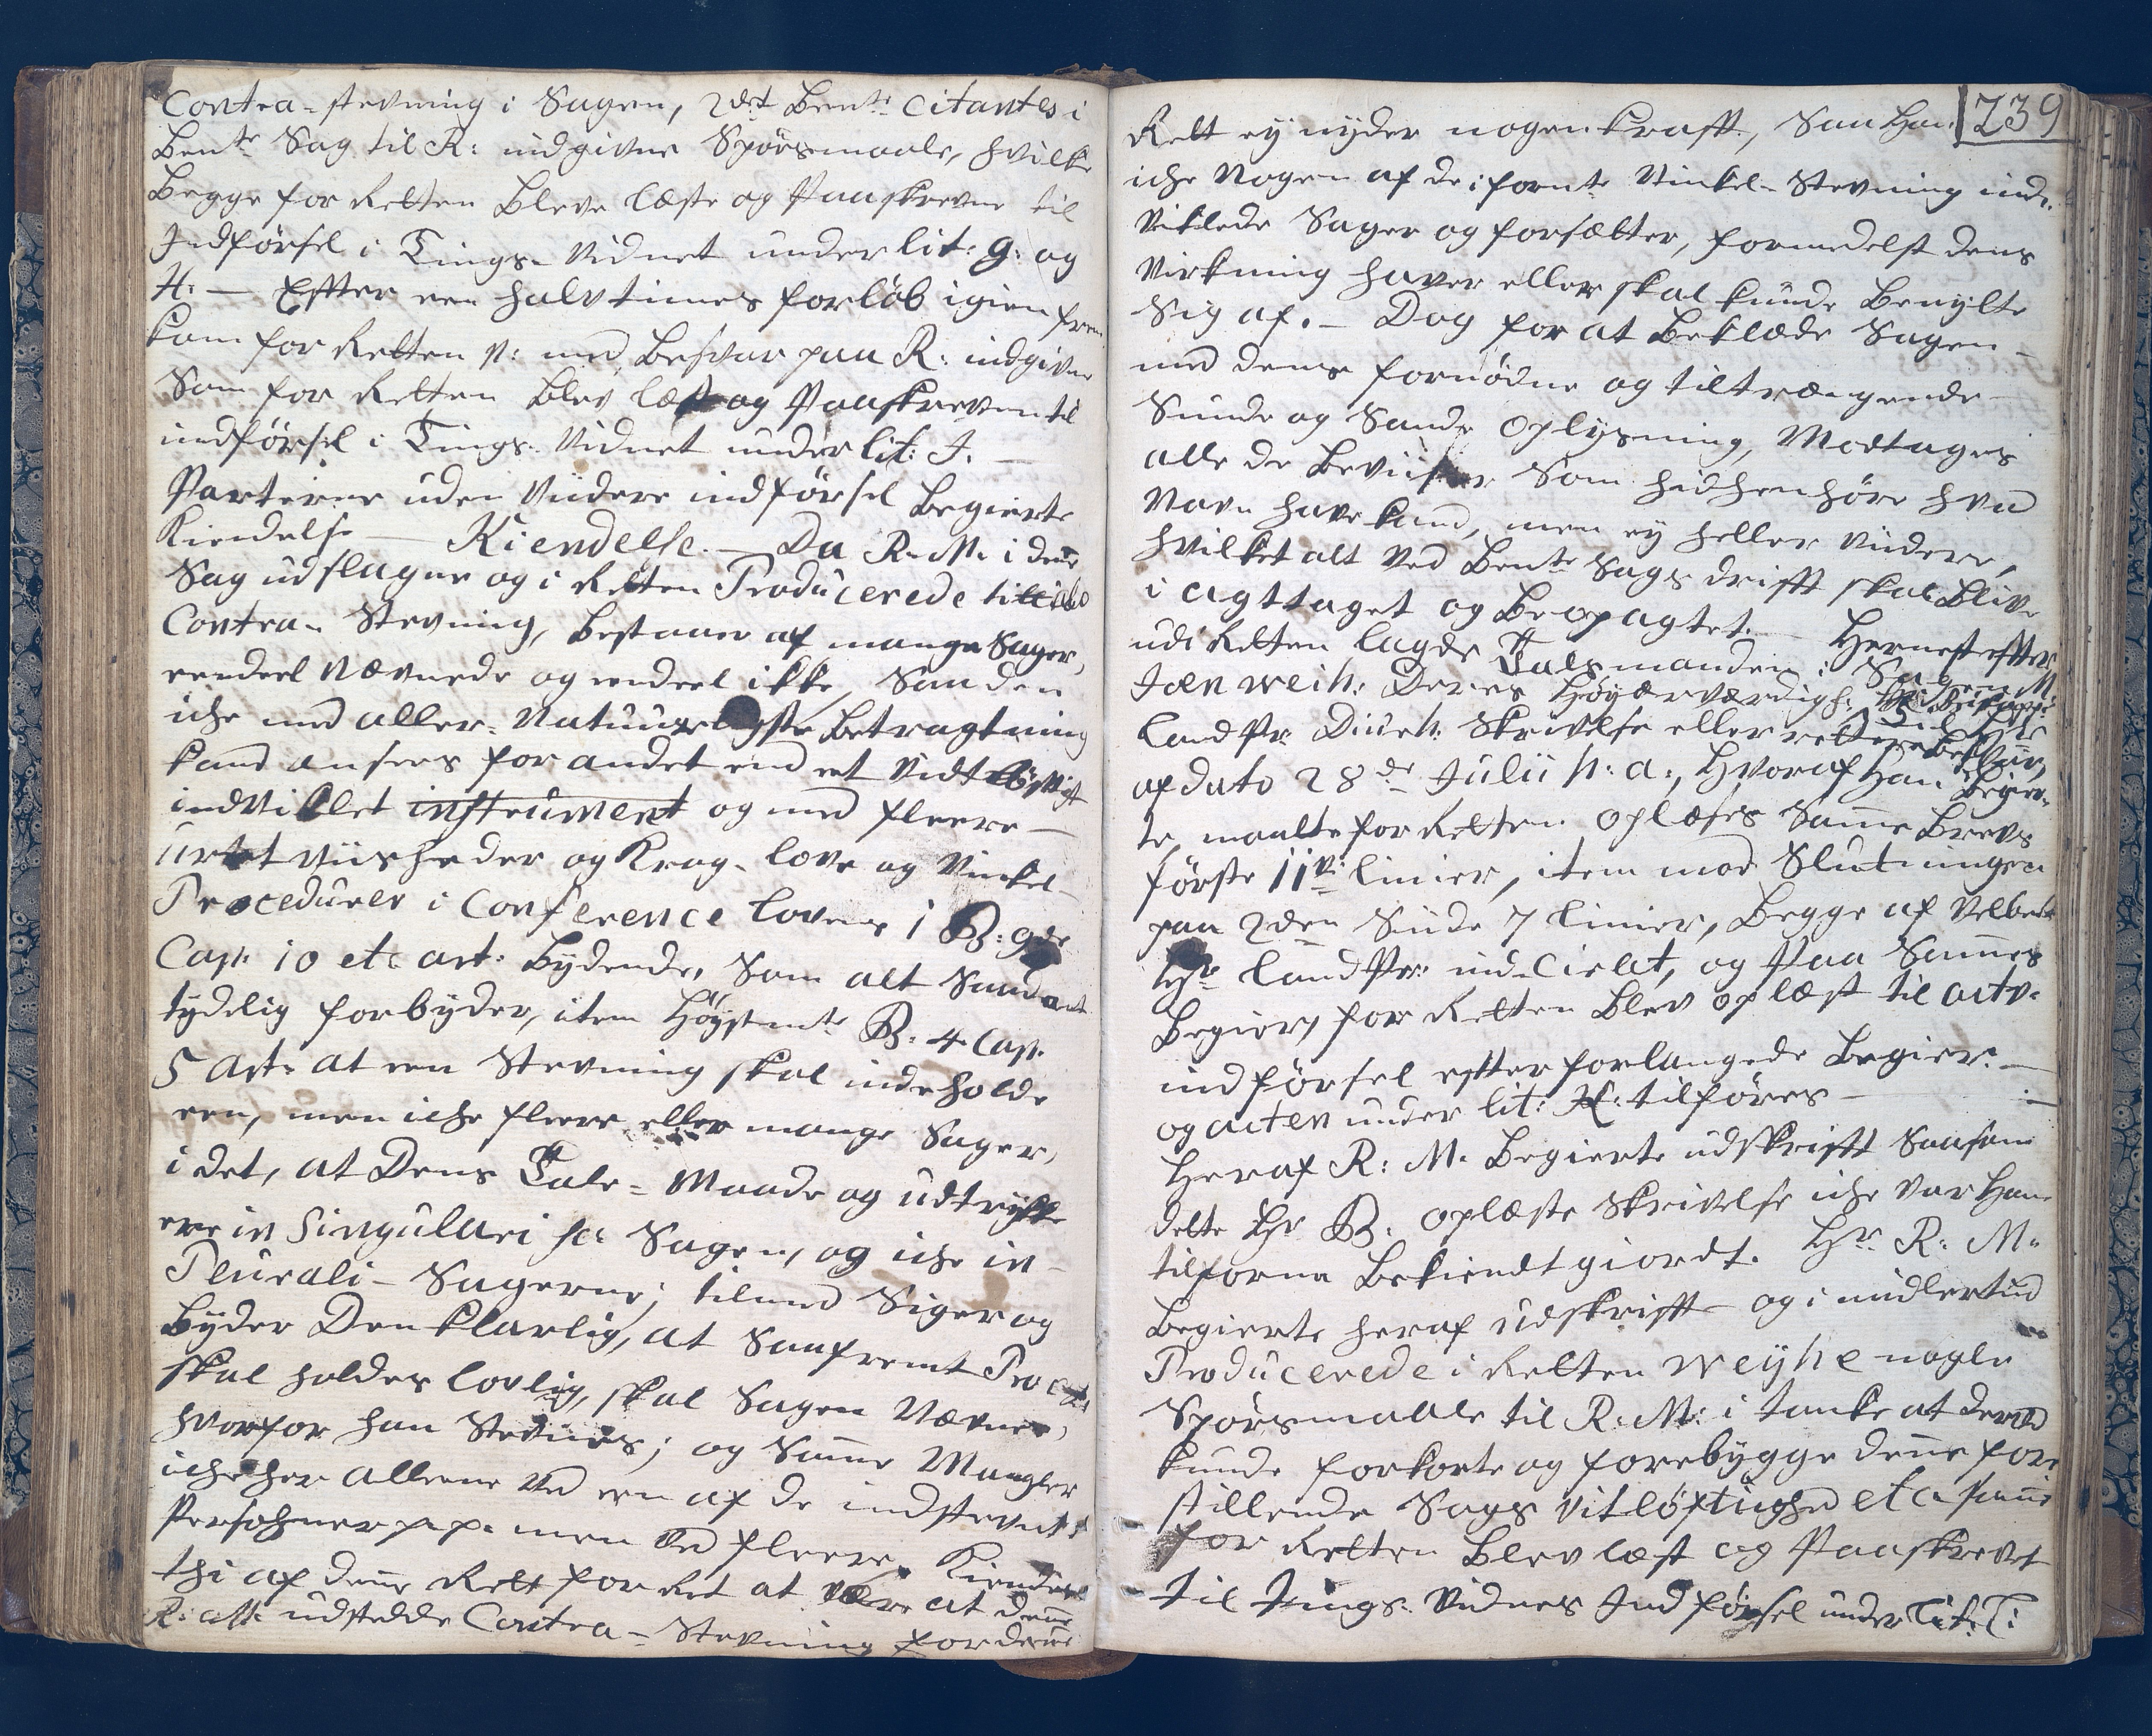 Contra-stevning i Sagen, 2det Bente Citantes i
Bente Sag til R: indgivne Spörsmaale, hvilke
begge for Retten bleve læste og Paaskrevne til
Indförsel i Tings-Vidnet under lit: G: og
H: — Effter een halv times forlöb igien frem
kom for Retten V: med besvar paa R: indgivne
Som for Retten blev læst og Paaskreven til
indförsel i Tings-Vidnet under lit: J. —
Parterne uden Viidere indförsel begierte
Kiendelse — Kiendelse. — Da R. M. i denne
Sag udslagne og i Retten Producerede
Contra-Stevning, bestaaer af mange Sager,
eendeel nævnede og eendeel ikke, Saa den
iche med aller-Natuurligste betragtning
kand ansees for andet end et Vidtlöfftigt
indviklet instrument og med fleere —
urtet viisheder og Krog-love og Vinkel-
Procedurer i Conference lovens 1 B: 9de
Cap. 10 etc art: bydende, Som alt Saadant
tydelig forbyder, item Höystemte B: 4 Cap.
5 Art: at een Stevning skal indeholde
een, men iche fleere eller mange Sager,
i det, at Dens Tale-Maade og udtrykke
ere in Singulari sc: Sagen, og iche in
Plurali-Sagerne; tilmed Siger og
byder Den klarlig, at Saafremt Proces
skal holdes lovlig, skal Sagen Nævnes,
hvorfor han Stevnes; og Samme Mangler
iche her alleene ved een af de indstevnte
Persohner p.p. men ved fleere. Kiendes
thi af denne Rett for Ret at være at denne
R: M: udstedde Contra-Stevning for denne
239
Rett ey nyder nogen krafft, Saa Han
iche Nogen af de i fornte Vinkel-Stevning ind-
viklede Sager og forsætter, formedelst dens
Virkning haver eller skal kunde benytte
Sig af. — Dog for at beklæde Sagen —
med dens fornödne og tiltrængende —
Sunde og Sande Oplysning, Modtages
alle de beviiser Som hidhenhöre hvad
Navn have kand, men ey heller viidere,
hvilket alt ved bente Sags drifft skal blive
i agttaget og beopagtet. — Hernest effter
udi Retten lagde Talsmanden i Sagen M.
Joen Weih: Deres Höyærværdigh:
landPr. Diurh: Skrivelse eller rettere
af dato 28de Julii h: a:, Hvoraf Han begier-
te, maatte for Retten oplæses Samme brevs
förste 11ve linier, item mod Slutningen
paa 2den Siide 7 linier, begge af Velbente
Hr. landPr: ind-Cirlet, og Paa Sammes
begier, for Retten blev oplæst til acts-
indförsel effter forlangede begier: —
og acten under lit: K: tilföres —
Heraf R: M. begierte udskrifft Saasom
dette Hr B. oplæste Skrivelse iche var Ham
tilforne bekiendtgiordt. Hr. R: M.
begierte heraf udskrifft og i midlertiid
Producerede i Retten Weyhe nogle
Spörsmaale til R: M: i tanke at derved
kunde forkorte og forebygge denne fore
stillende Sags vitlöftighed etc. Samme
for Retten blev læst og Paaskrevet
til tings-Vidnes Indförsel under lit: L: